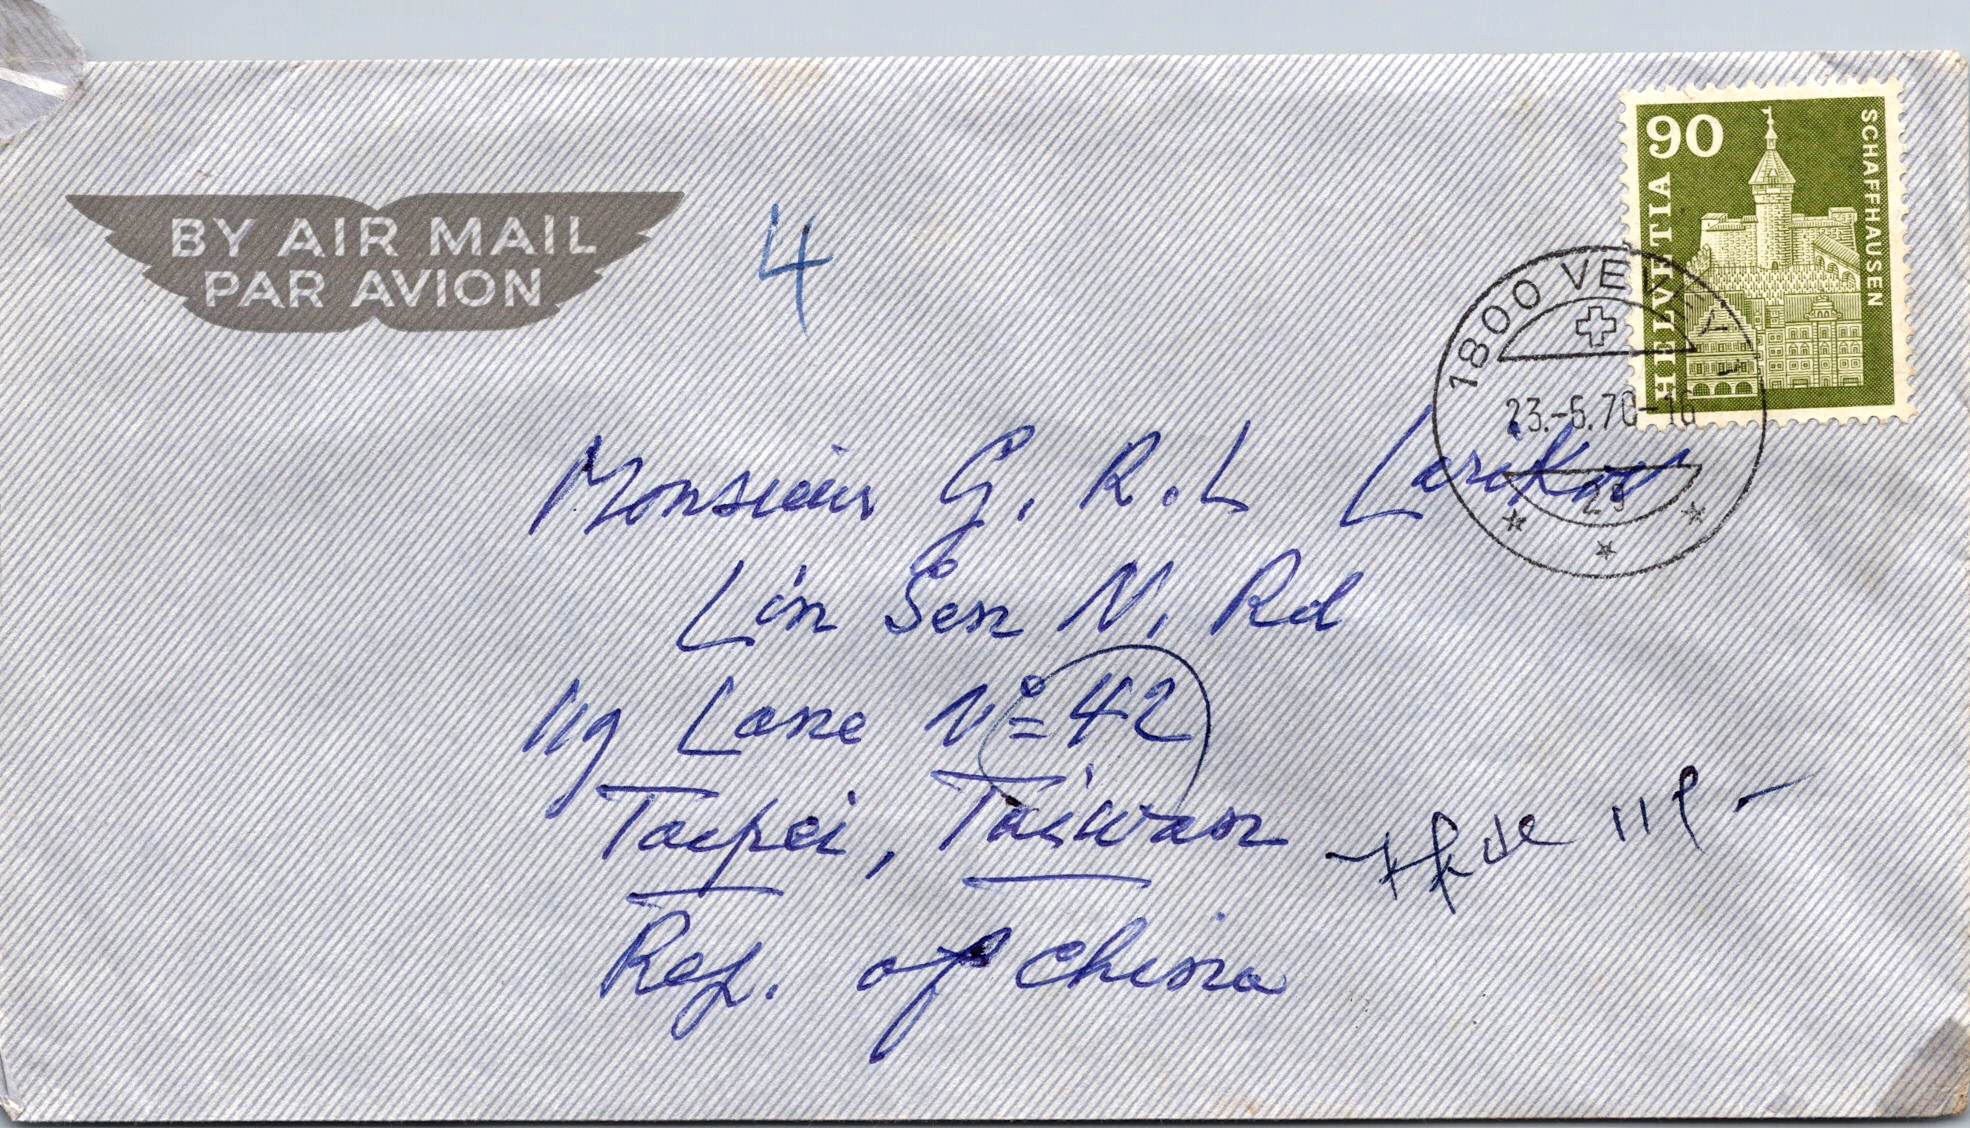 BY AIR MAIL
PAR AVION
4
90
HELVETIA
SCHAFFHAUSEN
1800 VEVEY 1
23.-6.70-16
Monsieur G. R. L
Lin Sen N. Rd
119 Lane N° 42
Taipei, Taiwan
Rep. of China